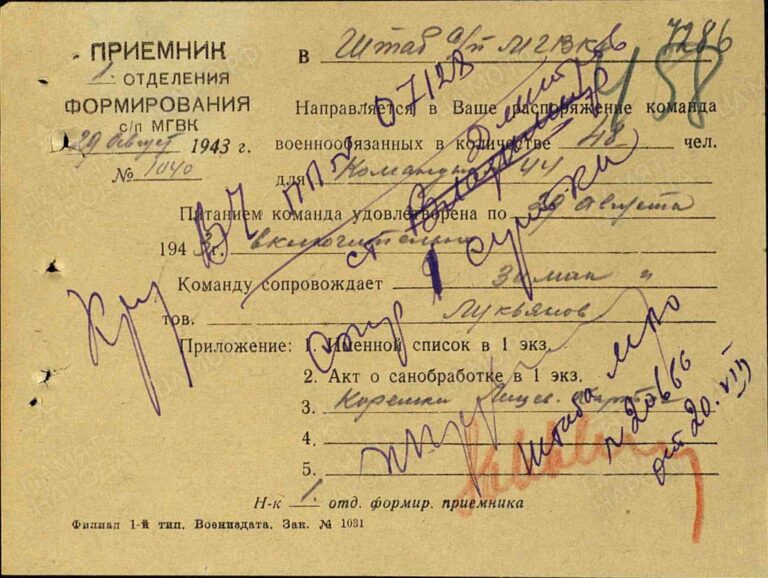 ПРИЕМНИК
1. ОТДЕЛЕНИЯ
ФОРМИРОВАНИЯ
с/п МГВК
29 август 1943 г.
№ 1040
В Штаб с/п МГВК 7286
458
Направляется в Ваше распоряжение команда
военнообязанных в количестве 48 чел.
для Команды 44
Питанием команда удовлетворена по 29 августа
1943 г. включительно
Команду сопровождает Заман и
тов. Лукьянов
Приложение: 1. Именной список в 1 экз.
2. Акт о санобработке в 1 экз.
3. Корешки
4.
5.
Н-к 1. отд. формир. приемника
Филиал 1-й тип. Воениздата. Зак. № 1031
ВЧ ППС 07128
ст Дмитров
Штаба МВО
№ 20666
от 20. VIII